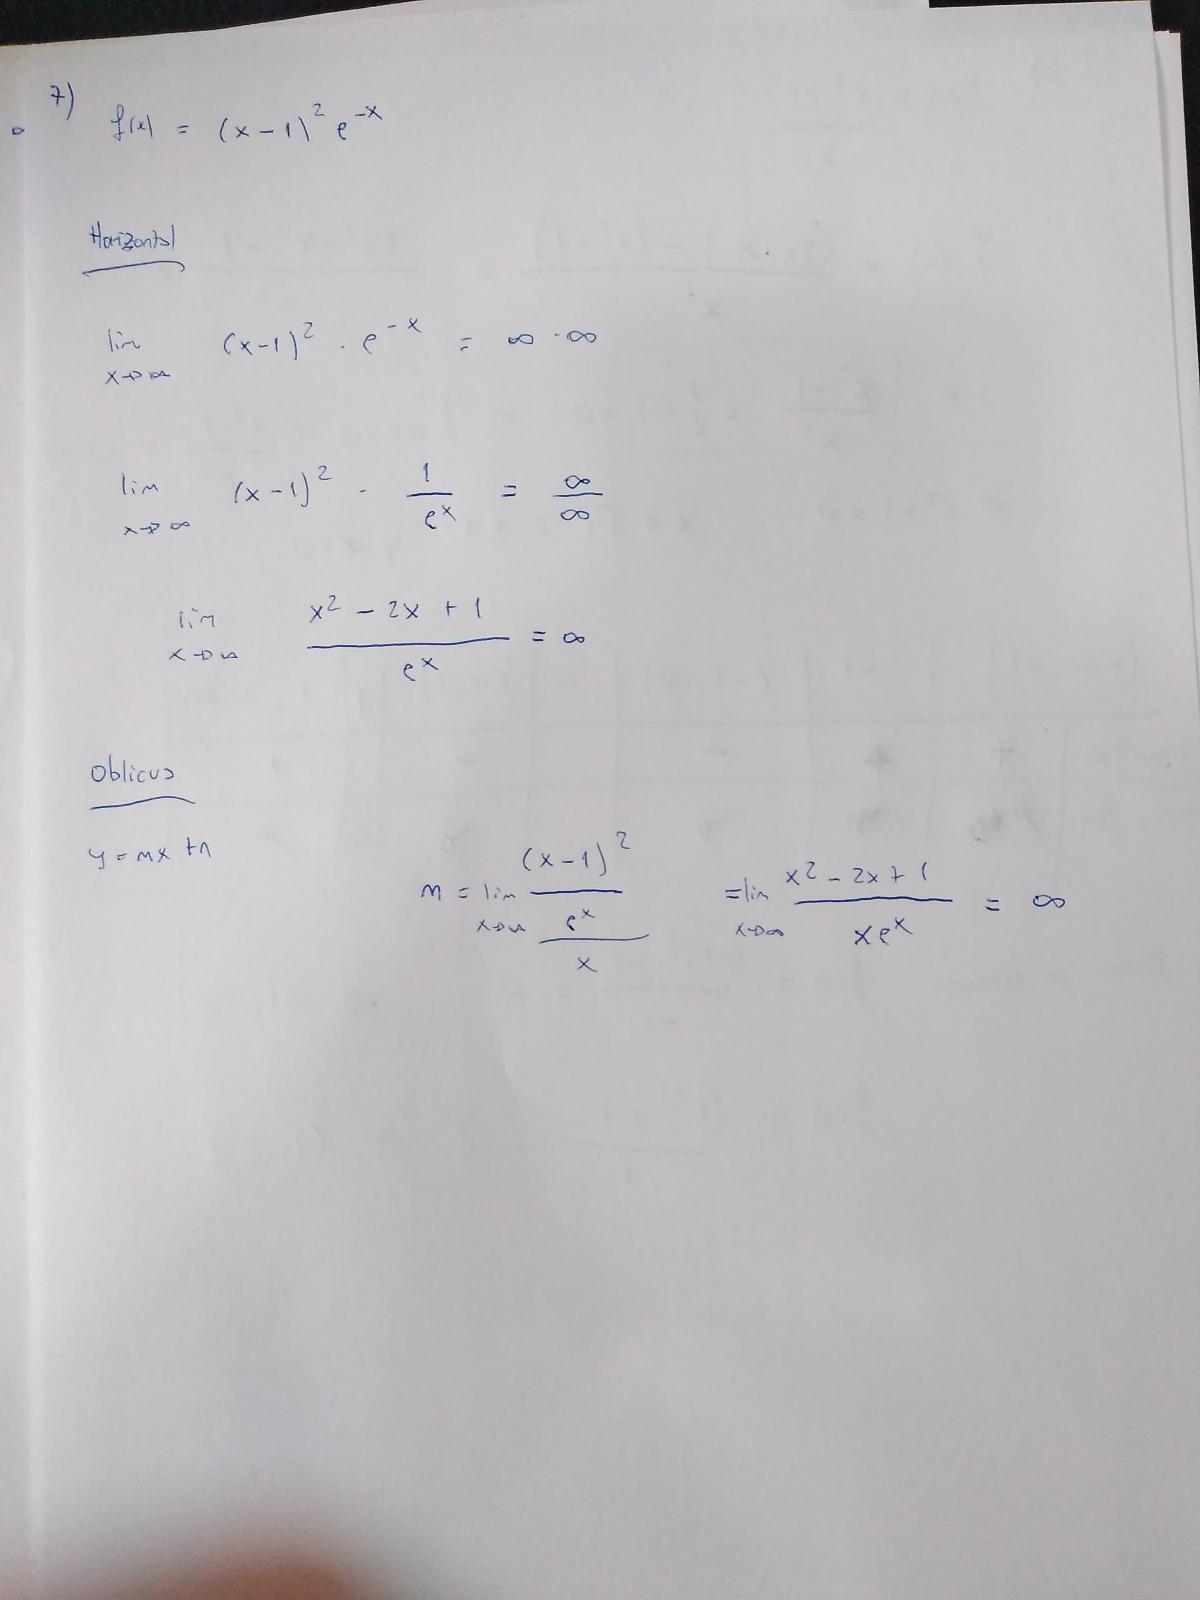 7)
f(x) = (x-1)² e^-x
Horizontal
lim x→∞ (x-1)² · e^-x = ∞ · ∞
lim x→∞ (x-1)² · 1/e^x = ∞/∞
lim x→∞ (x² - 2x + 1)/e^x = ∞
Oblicua
y = mx + n
m = lim x→∞ ((x-1)²/e^x)/x = lim x→∞ (x² - 2x + 1)/(xe^x) = ∞